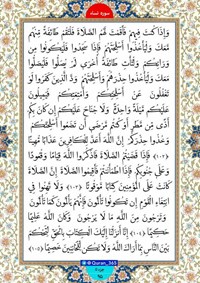 سوره نساء
وَإِذَا كُنتَ فِيهِمْ فَأَقَمْتَ لَهُمُ الصَّلَاةَ فَلْتَقُمْ طَائِفَةٌ مِّنْهُم
مَّعَكَ وَلْيَأْخُذُوا أَسْلِحَتَهُمْ فَإِذَا سَجَدُوا فَلْيَكُونُوا مِن
وَرَائِكُمْ وَلْتَأْتِ طَائِفَةٌ أُخْرَىٰ لَمْ يُصَلُّوا فَلْيُصَلُّوا
مَعَكَ وَلْيَأْخُذُوا حِذْرَهُمْ وَأَسْلِحَتَهُمْ وَدَّ الَّذِينَ كَفَرُوا لَوْ
تَغْفُلُونَ عَنْ أَسْلِحَتِكُمْ وَأَمْتِعَتِكُمْ فَيَمِيلُونَ
عَلَيْكُم مَّيْلَةً وَاحِدَةً وَلَا جُنَاحَ عَلَيْكُمْ إِن كَانَ بِكُمْ
أَذًى مِّن مَّطَرٍ أَوْ كُنتُم مَّرْضَىٰ أَن تَضَعُوا أَسْلِحَتَكُمْ
وَخُذُوا حِذْرَكُمْ إِنَّ اللَّهَ أَعَدَّ لِلْكَافِرِينَ عَذَابًا مُّهِينًا
(۱۰۲) فَإِذَا قَضَيْتُمُ الصَّلَاةَ فَاذْكُرُوا اللَّهَ قِيَامًا وَقُعُودًا
وَعَلَىٰ جُنُوبِكُمْ فَإِذَا اطْمَأْنَنتُمْ فَأَقِيمُوا الصَّلَاةَ إِنَّ الصَّلَاةَ
كَانَتْ عَلَى الْمُؤْمِنِينَ كِتَابًا مَّوْقُوتًا (۱۰۳) وَلَا تَهِنُوا فِي
ابْتِغَاءِ الْقَوْمِ إِن تَكُونُوا تَأْلَمُونَ فَإِنَّهُمْ يَأْلَمُونَ كَمَا تَأْلَمُونَ
وَتَرْجُونَ مِنَ اللَّهِ مَا لَا يَرْجُونَ وَكَانَ اللَّهُ عَلِيمًا
حَكِيمًا (۱۰۴) إِنَّا أَنزَلْنَا إِلَيْكَ الْكِتَابَ بِالْحَقِّ لِتَحْكُمَ
بَيْنَ النَّاسِ بِمَا أَرَاكَ اللَّهُ وَلَا تَكُن لِّلْخَائِنِينَ خَصِيمًا (۱۰۵)
@Quran_365